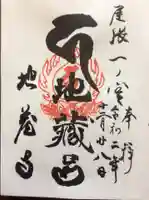 奉拝
令和二年
十二月廿八日
尾張一ノ宮
地藏
地蔵寺